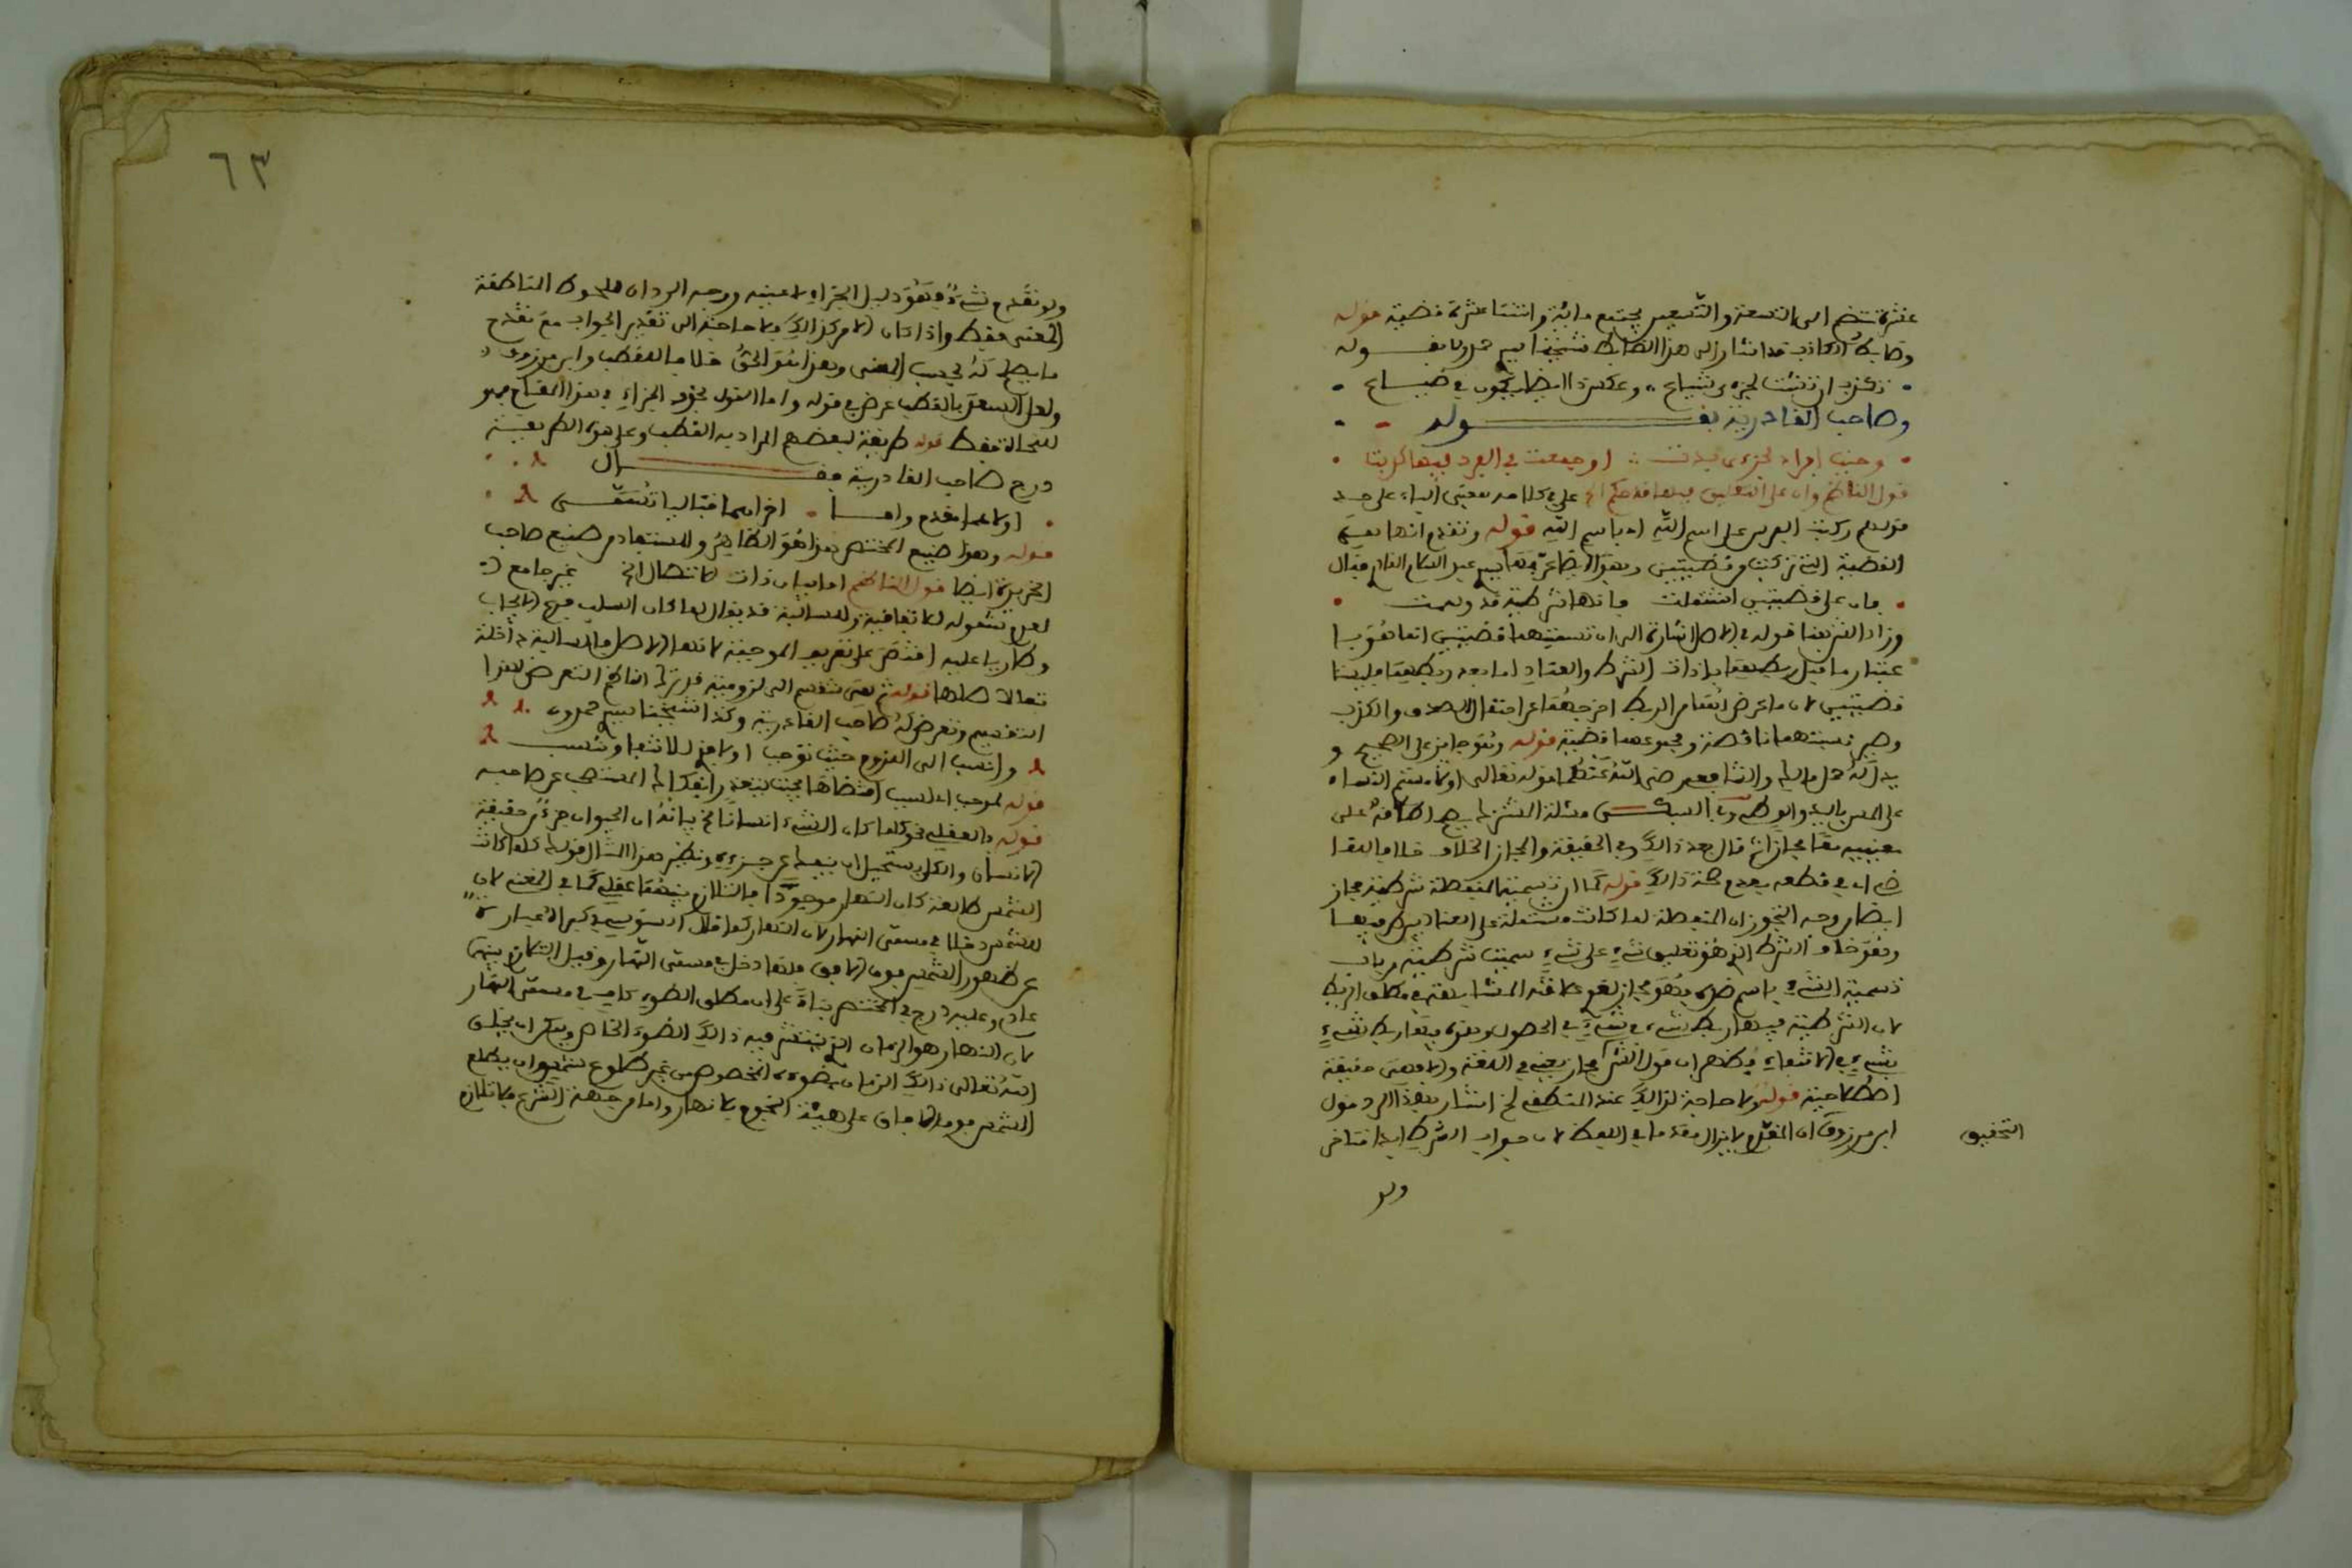 عشرة تنضم الى التسعة والتسعين يجتمع مائة واثنتا عشرة قضية قوله
وضابط الكاذب قد اشار الى هذا الضابط شيخنا سيد حمدون بقوله
وصاحب القادرية بقـــــــــــولـه
قول الناظم وان على التعليق فيها قد حكم الخ على في كلامه بمعنى الباء على حد
قولهم ركبت الفرس على اسم الله اي باسم الله قوله وتقدم انها بمعنى
القضية التي تركبت من قضيتين وبهذا ايضا عرفها سيد عبد السلام القادري فقال
• فان على قضيتين اشتملت فانها شرطية قد وسمت •
وزاد الشريف قوله في الاصل اشارة الى ان تسميتهما قضيتين انما هو با
عتبار ما قبل ربطهما باداة الشرط والعناد اما بعد ربطهما فليستا
قضيتين لان ما عرض لهما من الربط اخرجهما عن احتمال الصدق والكذب
وصير نسبتهما ناقصة ومجموعهما قضية قوله وهو جائز على الصحيح و
يدل له حمل مالك والشافعي رضي الله عنهما قوله تعالى او لامستم النساء
على المس باليد والوطء السبكي مسئلة المشترك يصح اطلاقه على
معنييه معا مجازا ثم قال بعد ذالك وفي الحقيقة والمجاز الخلاف خلافا للقا
ضي اي في قطعه بعدم صحة ذالك قوله كما ان تسمية المنفصلة شرطية مجاز
ايضا وجه التجوز ان المنفصلة لما كانت مشتملة على العناد بين طرفيها
وهو خلاف الشرط الذي هو تعليق شيء على شيء سميت شرطية من باب
تسمية الشيء باسم ضده وهو مجاز لغوي علاقته المشابهة في مطلق الربط
لان الشرطية فيها ربط شيء بشيء في الحصول وهذه فيها ربط شيء
بشيء في الانتفاء فظهر ان قول الش مجاز يعني في اللغة والا فهي حقيقة
اصطلاحية قوله ولا حاجة لذالك عند المنطقي الخ اشار بهذا الرد قول
ابن مرزوق ان المقدم لا يزال مقدما في اللفظ لان جواب الشرط ابدا متاخر
التحقيق
ولو
٦٣
ولو تقدم شيء فهو دليل الجزاء لا عينه ووجه الرد ان ملحوظ المناطقة
المعنى فقط واذا كان الامر كذالك فلا حاجة الى تقدير الجواب مع تقدم
ما يصلح له بحسب المعنى وهذا هو الحق خلافا للقطب وابن مرزوق
ولعل السعد بالقطب عرض في قوله واما القول بحذف الجزاء في هذا المقام فهو
للنحاة فقط قوله طريقة لبعضهم المراد به القطب وعلى هذه الطريقة
درج صاحب القادرية فقـــــــــــال
• اولاهما مقدم وامـا • اخراهما فتاليا تسمـى
قوله وهذا صنيع المختصر هذا هو الظاهر والمستفاد من صنيع صاحب
الخريدة ايضا قول الناظم اما بيان ذات الاتصال الخ غير جامع
لعدم شموله للاتفاقية وللسالبة قد يقال لما كان السلب فرع الايجاب
وطاريا عليه اقتصر على تعريف الموجبة لانها الاصل والسالبة داخلة
تبعا لاصلها قوله ثم هي تنقسم الى لزومية قد ترك الناظم التعرض لهذا
التقسيم وتعرض له صاحب القادرية وكذا شيخنا سيد حمدون
وانسب الى اللزوم حيث توجب اولاهما للاتفاق تنسب
قوله لموجب اي لسبب اقتضاها بحيث يتعذر انفكاك المستصحب عن صاحبه
قوله والعقلي نحو كلما كان الشيء انسانا الخ بيانه ان الحيوان جزء حقيقة
الانسان والكل يستحيل ان ينفك عن جزءه ونظير هذا المثال قولك كلما كانت
الشمس طالعة كان النهار موجودا فالتلازم بينهما عقلي كما في المغني لان
للشمس دخلا في مسمى النهار لان النهار كما قال السنوسي وغيره عبارة
عن ظهور الشمس فوق الافق فلها دخل في مسمى النهار وقيل التلازم بينهما
عادي وعليه درج في المختصر بناء على ان مطلق الضوء كاف في مسمى النهار
لان النهار هو الزمان الذي ينتشر فيه ذالك الضوء الخاص ويمكن ان يخلق
الله تعالى ذالك الزمان بضوءه المخصوص من غير طلوع شمس وان يطلع
الشمس فوق الافاق على هيئة النجوم بلا نهار واما من جهة الشرع فلا تلازم